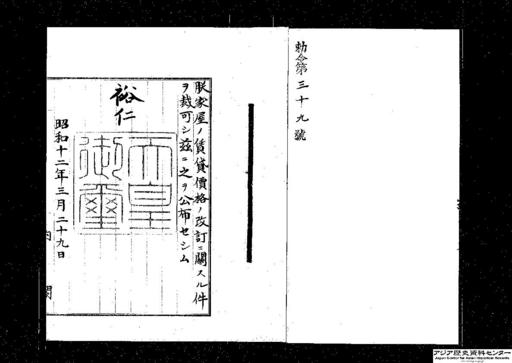 勅令第三十九號
朕家屋ノ賃貸價格ノ改訂ニ關スル件
ヲ裁可シ茲ニ之ヲ公布セシム
裕仁
天皇
御璽
昭和十二年三月二十九日
内閣
アジア歴史資料センター
Japan Center for Asian Historical Records